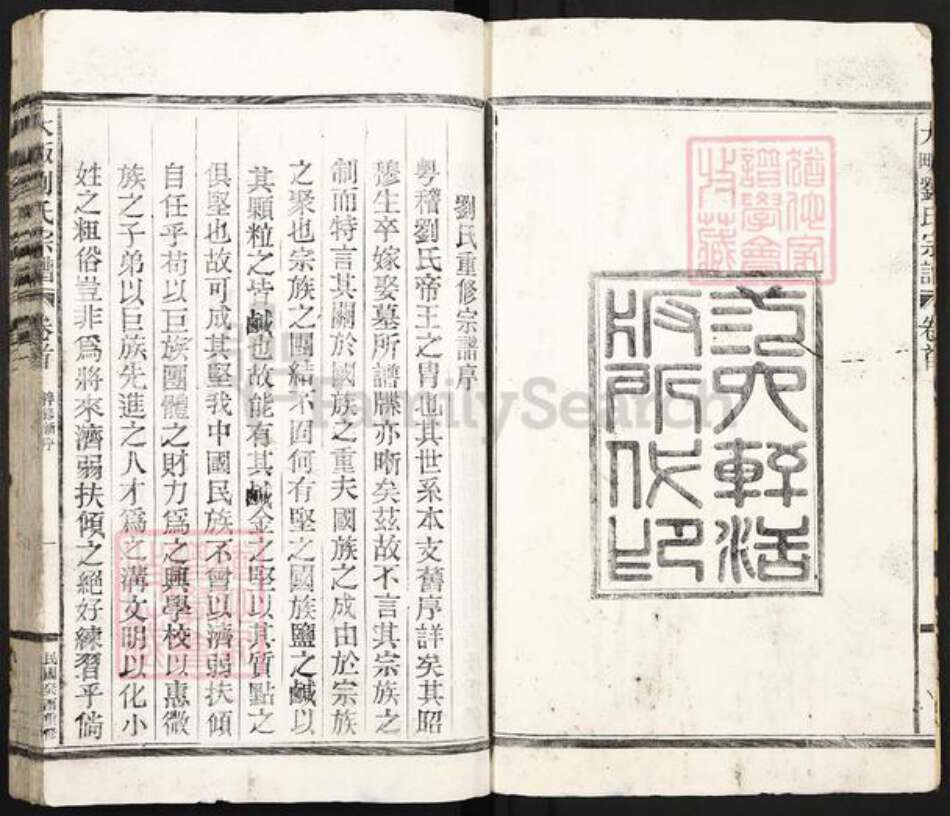 大畈劉氏宗譜 卷首
猶他家譜學會收藏
範文軒活
版所代印
劉氏重修宗譜序
粵稽劉氏帝王之胄也其世系本支舊序詳矣其昭
穆生卒嫁娶墓所譜牒亦晰矣茲故不言其宗族之
制而特言其關於國族之重夫國族之成由於宗族
之聚也宗族之團結不固何有堅之國族鹽之鹹以
其顆粒之皆鹹也故能有其鹹金之堅以其質點之
俱堅也故可成其堅我中國民族不會以濟弱扶傾
自任乎苟以巨族團體之財力爲之興學校以惠微
族之子弟以巨族先進之人才爲之溝文明以化小
姓之粗俗豈非爲將來濟弱扶傾之絕好練習乎倘
大畈劉氏宗譜 卷首 一 民國癸酉重修
FamilySearch